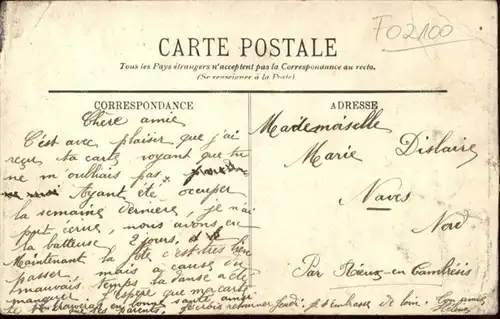 F02100
CARTE POSTALE
Tous les Pays étrangers n'acceptent pas la Correspondance au recto.
(Se renseigner à la Poste)
CORRESPONDANCE
Chère amie
C'est avec plaisir que j'ai
reçu ta carte voyant que tu
ne m'oubliais pas
Ayant été occuper
la semaine dernière, je n'ai
pas écrire, nous avons eu
la batteuse 2 jours,
Maintenant la fête c'est très bien
passer, mais a cause du
mauvais temps la danse a été
manquer. J'espère que ma carte
te trouvera en bonne santé, ainsi
que tes parents. retourner Jeudi. Je t'embrasse de loin. Ton amie
ADRESSE
Mademoiselle
Marie Dislaire
Naves
Nord
Par Rieux-en-Cambrésis